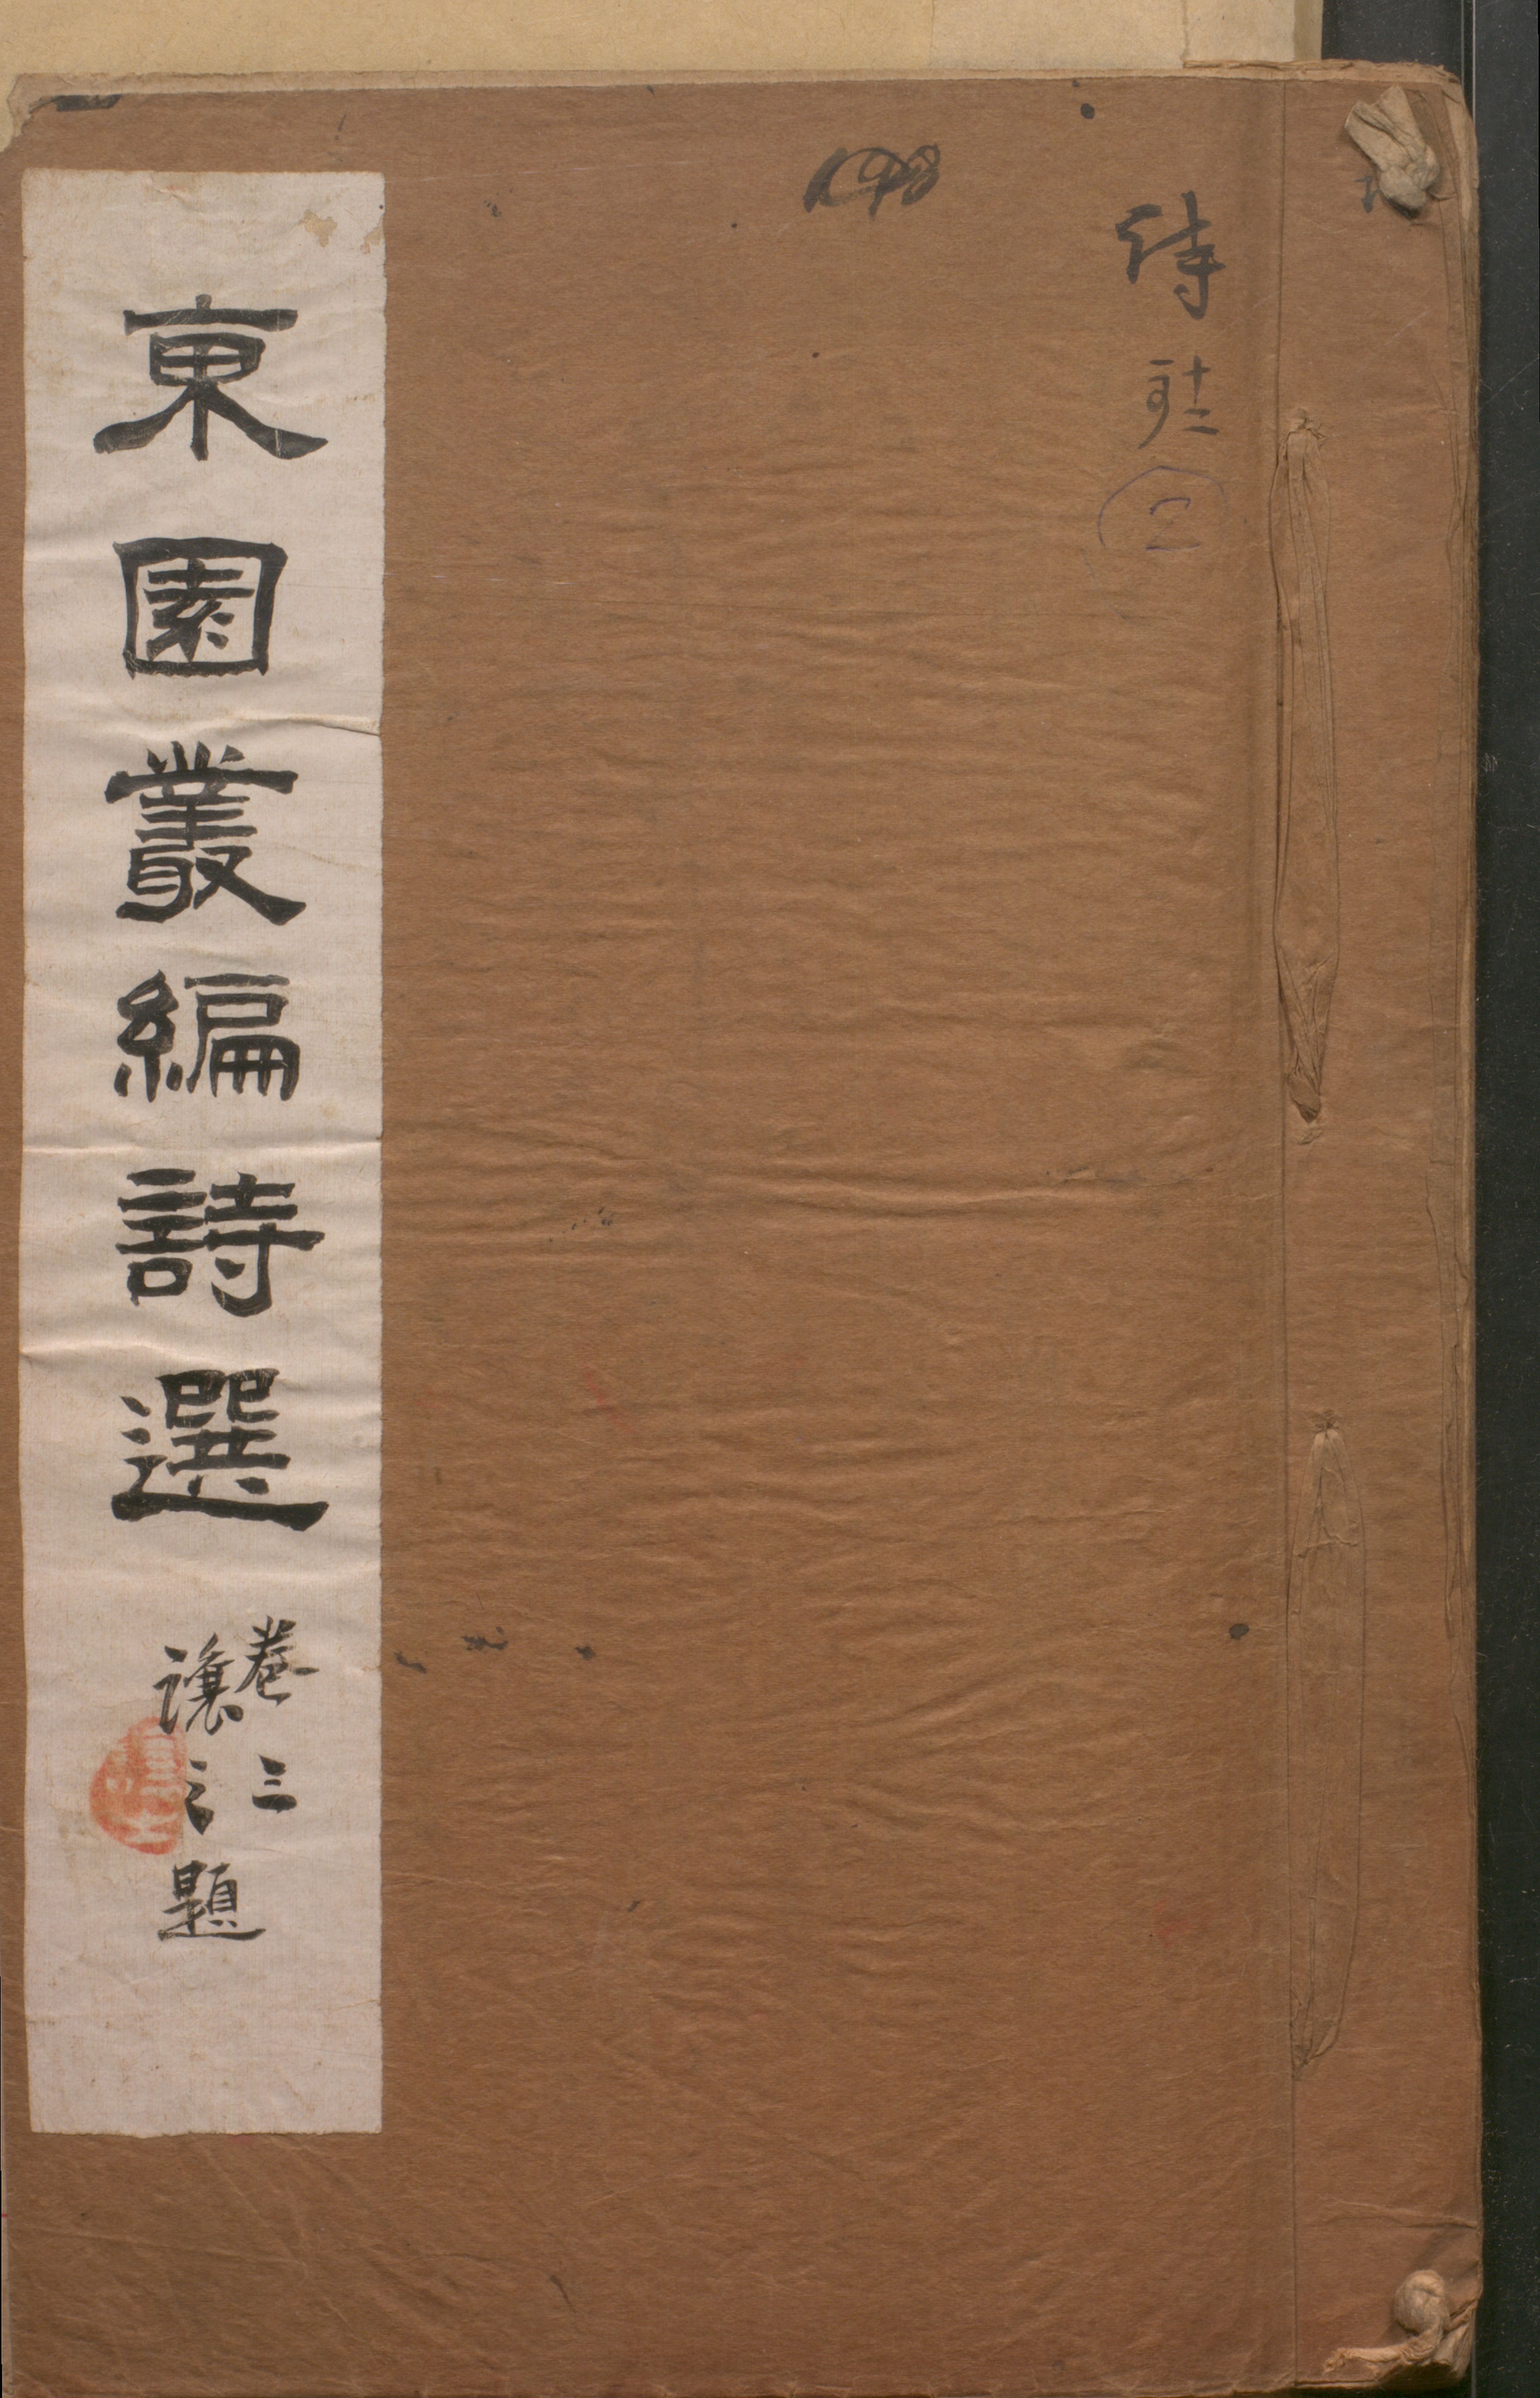 198
诗
社
2
東園叢編詩選
卷三
讓之題